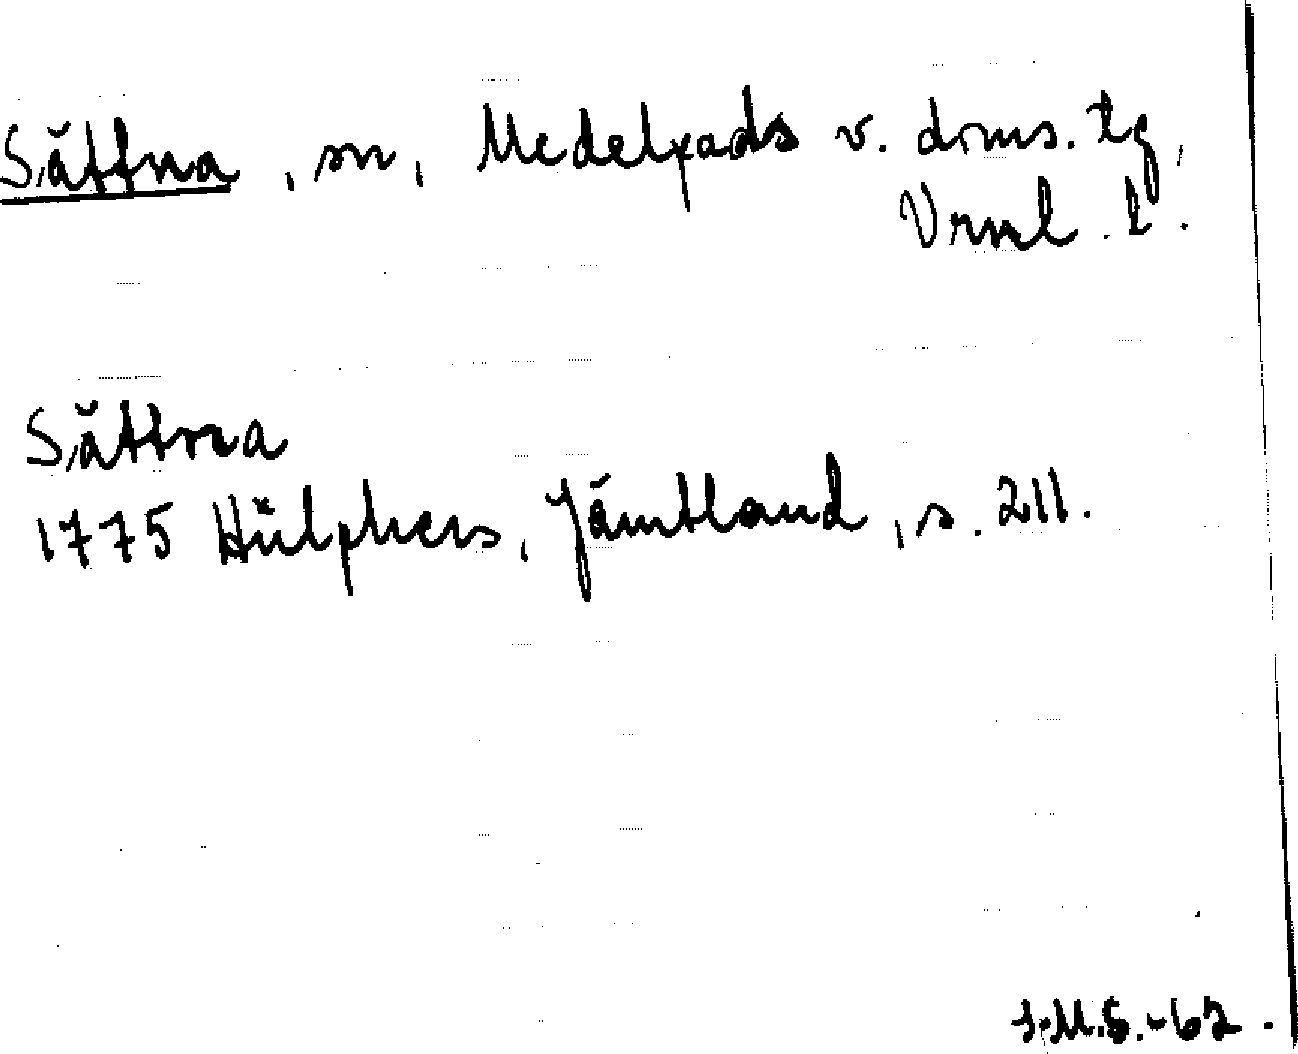 Sättna, sn, Medelpads v. doms. tg,
Vrnl. l.
Sättna
1775 Hülphers, Jämtland, s. 211.
I.M.S.-62.